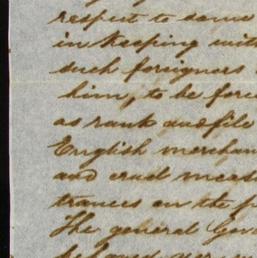 respect to some
in keeping with
such foreigners
him, to be forc
as rank and file
English merchan
and cruel meas
trances on the p
The general Gov